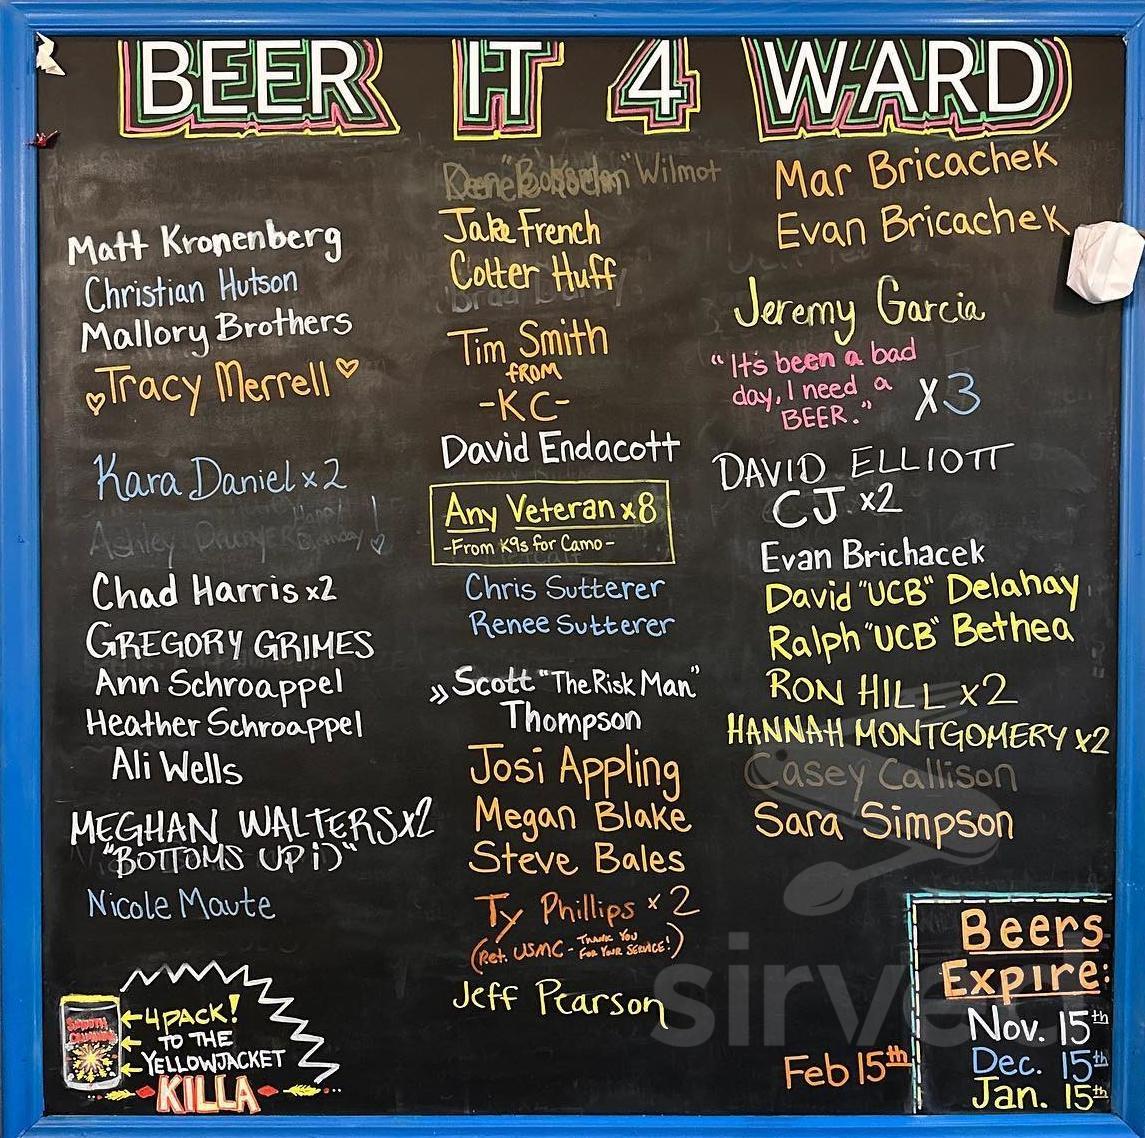 BEER IT 4 WARD
Matt Kronenberg
Christian Hutson
Mallory Brothers
Tracy Merrell
Kara Daniel x2
Ashley
Chad Harris x2
GREGORY GRIMES
Ann Schroappel
Heather Schroappel
Ali Wells
MEGHAN WALTERS x2
"BOTTOMS UP i)"
Nicole Maute
4 PACK!
TO THE
YELLOWJACKET
KILLA
Wilmot
Jake French
Colter Huff
Tim Smith
FROM
-KC-
David Endacott
Any Veteran x8
-From K9s for Camo-
Chris Sutterer
Renee Sutterer
» Scott "The Risk Man"
Thompson
Josi Appling
Megan Blake
Steve Bales
Ty Phillips x 2
(Ret. USMC - THANK YOU
FOR YOUR SERVICE!)
Jeff Pearson
Mar Bricachek
Evan Bricachek
Jeremy Garcia
"It's been a bad
day, I need a
BEER." X3
DAVID ELLIOTT
CJ x2
Evan Brichacek
David "UCB" Delahay
Ralph "UCB" Bethea
RON HILL x2
HANNAH MONTGOMERY x2
Casey Callison
Sara Simpson
Beers
Expire:
Nov. 15th
Dec. 15th
Jan. 15th
Feb 15th
sirved